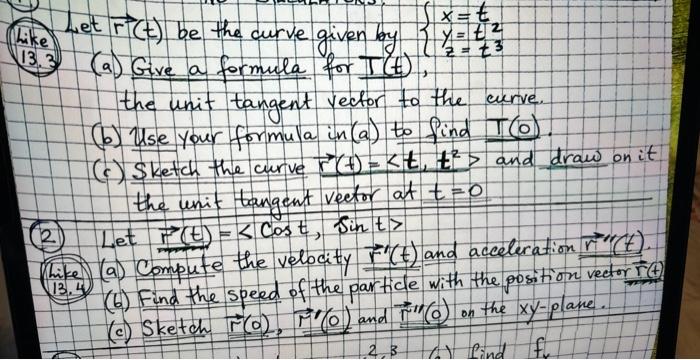 Let r⃗(t) be the curve given by { x = t
y = t²
z = t³
(Like 13.3)
(a) Give a formula for T(t),
the unit tangent vector to the curve.
(b) Use your formula in (a) to find T(0).
(c) Sketch the curve r⃗(t) = <t, t²> and draw on it
the unit tangent vector at t = 0
(2) Let r⃗(t) = < Cos t, Sin t>
(Like 13.4)
(a) Compute the velocity r⃗'(t) and acceleration r⃗''(t).
(b) Find the speed of the particle with the position vector r⃗(t)
(c) Sketch r⃗(0), r⃗'(0) and r⃗''(0) on the xy-plane.
2 3 find